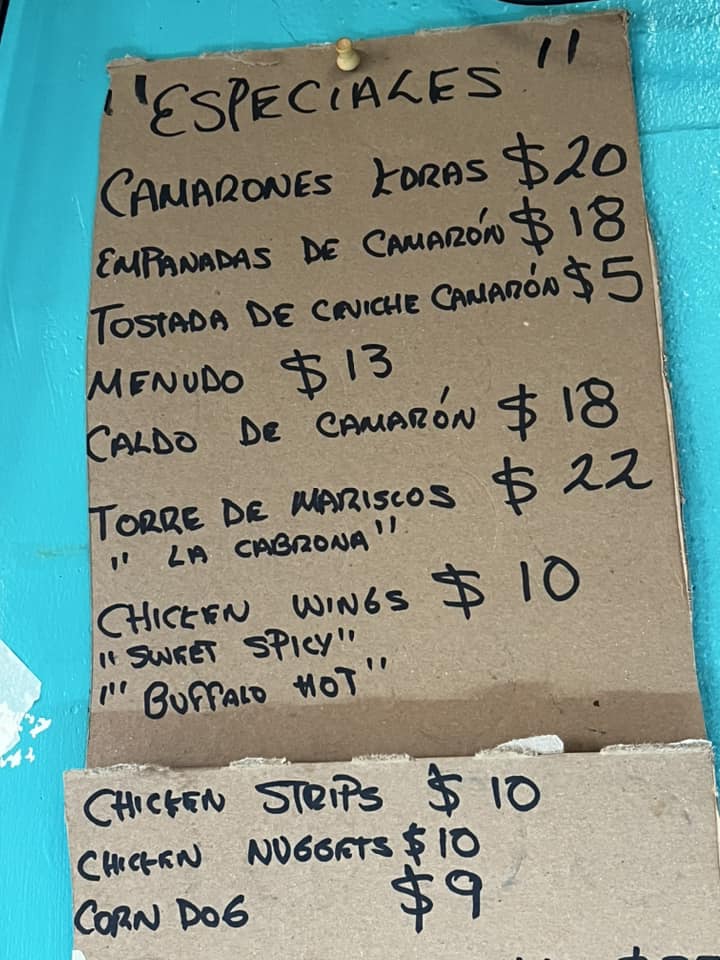 "ESPECIALES"
CAMARONES KORAS $20
EMPANADAS DE CAMARÓN $18
TOSTADA DE CEVICHE CAMARÓN $5
MENUDO $13
CALDO DE CAMARÓN $18
TORRE DE MARISCOS $22
"LA CABRONA"
CHICKEN WINGS $10
"SWEET SPICY"
"BUFFALO HOT"
CHICKEN STRIPS $10
CHICKEN NUGGETS $10
CORN DOG $9